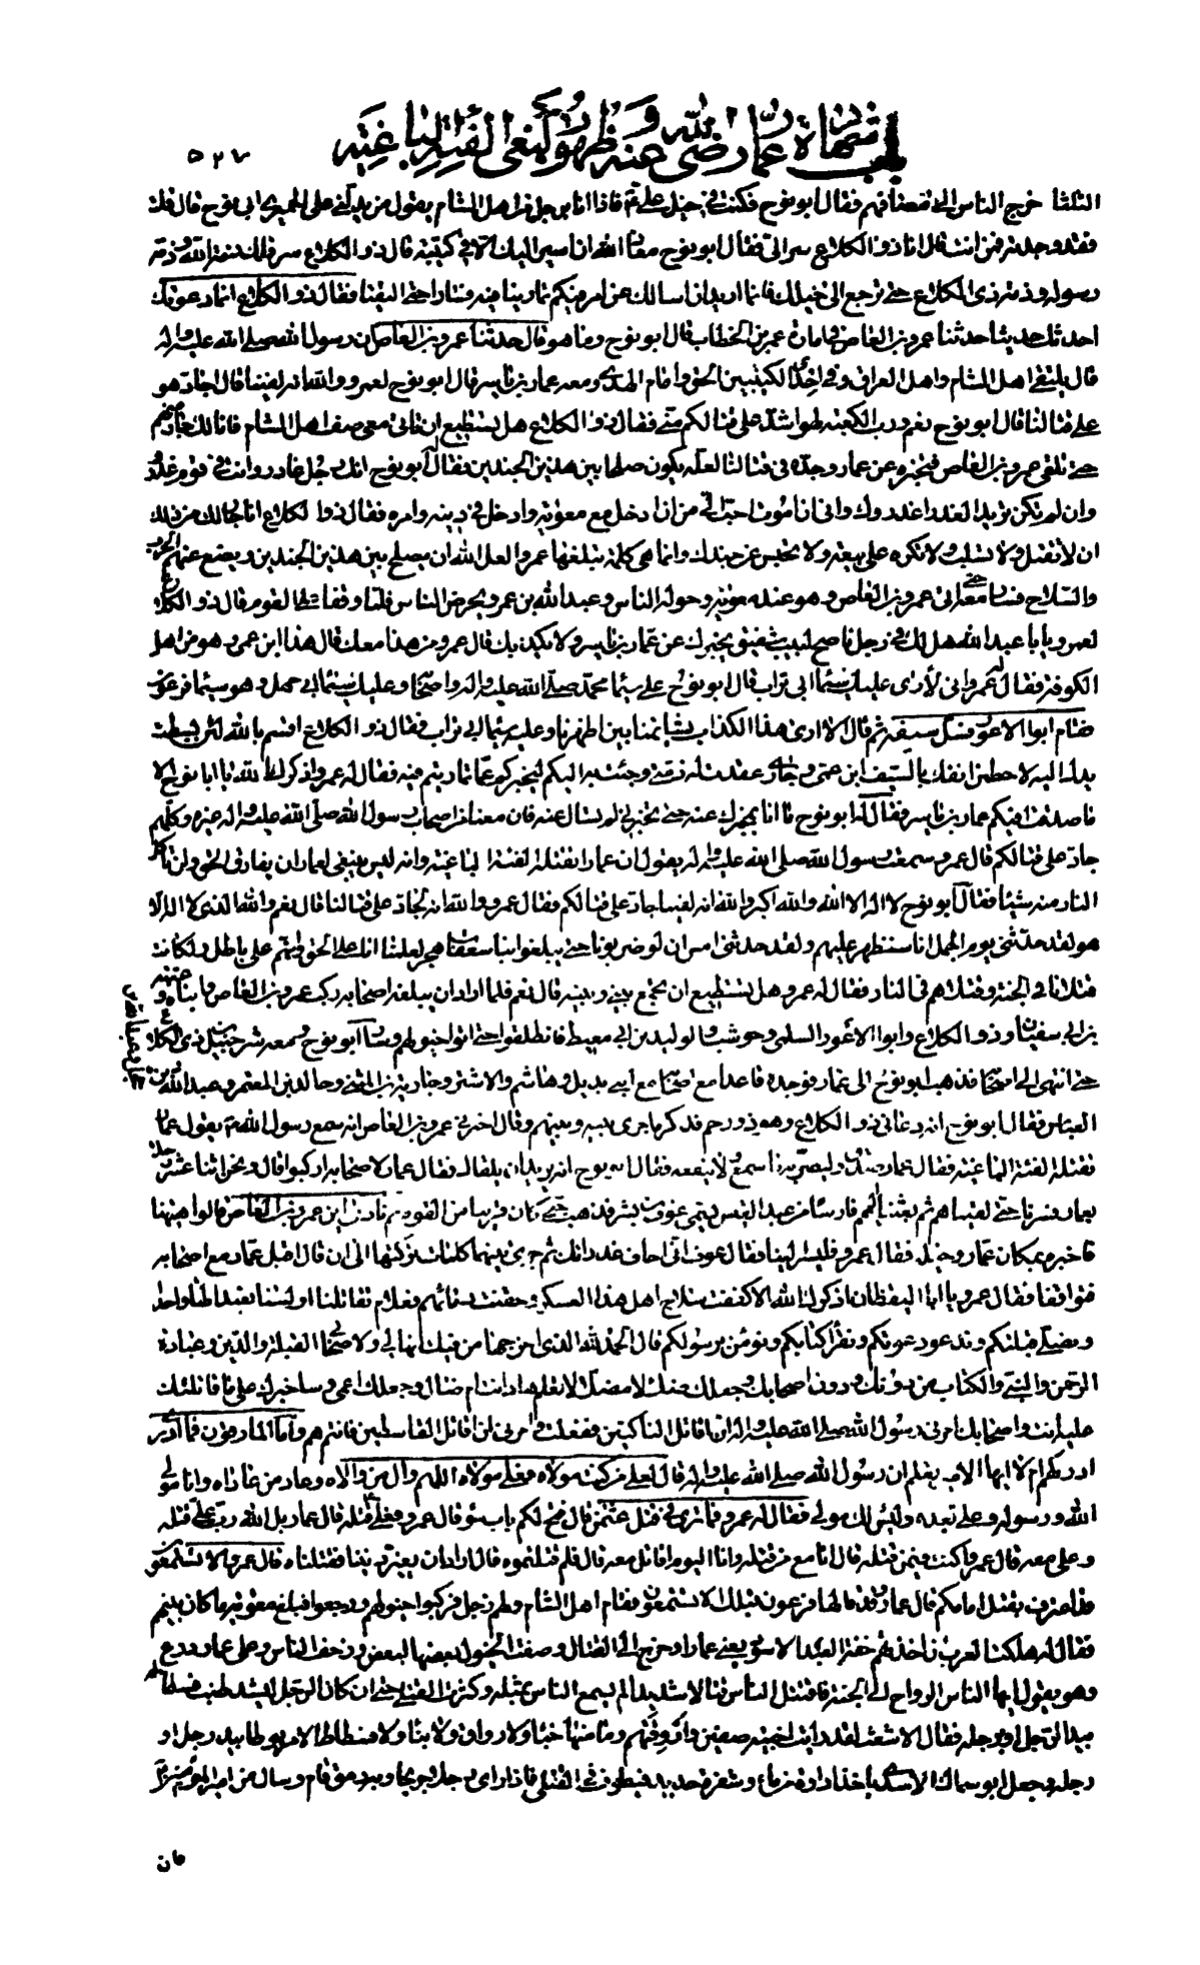 باب شهادة عمار رضي الله عنه وظهور بغي الفئة الباغية ٥٢٧
الثلثا خرج الناس الى مصافهم فقال ابو نوح فكنت في خيل علي ع فاذا انا برجل من اهل الشام يقول من يدلني على الحميري ابي نوح قال قلت
فقد وجدته فمن انت قال انا ذو الكلاع سر الي فقال ابو نوح معاذ الله ان اسير اليك الا في كتيبة قال ذو الكلاع سر فلك ذمة الله وذمة
رسوله وذمة ذي الكلاع حتى ترجع الى خيلك فانما اريد ان اسالك عن امر فيكم تمارينا فيه فسارا حتى التقيا فقال ذو الكلاع انما دعوتك
احدثك حديثا حدثنا عمرو بن العاص في امارة عمر بن الخطاب قال ابو نوح وما هو قال حدثنا عمرو بن العاص ان رسول الله صلى الله عليه واله
قال يلتقي اهل الشام واهل العراق وفي احدى الكتيبتين الحق وامام الهدى ومعه عمار بن ياسر قال ابو نوح لعمرو والله انه لفينا قال اجاد هو
على قتالنا قال ابو نوح نعم ورب الكعبة لهو اشد على قتالكم مني فقال ذو الكلاع هل تستطيع ان تاتي معي صف اهل الشام فانا لك جار منهم
حتى تلقى عمرو بن العاص فتخبره عن عمار وجده في قتالنا لعله يكون صلحا بين هذين الجندين فقال له ابو نوح انك رجل غادر وانت في قوم غدر
وان لم تكن تريد الغدر اغدروك واني ان اموت احب الي من ان ادخل مع معوية وادخل في دينه وامره فقال ذو الكلاع انا جار لك من ذلك
ان لا تقتل ولا تسلب ولا تكره على بيعة ولا تحبس عن جندك وانما هي كلمة تبلغها عمروا لعل الله ان يصلح بين هذين الجندين ويضع عنهم الحرب
والسلاح فسار معه حتى اتى عمرو بن العاص وهو عند معوية وحوله الناس وعبد الله بن عمرو يحرض الناس فلما وقفا على القوم قال ذو الكلاع
لعمرو يا با عبد الله هل لك في رجل ناصح لبيب شفيق يخبرك عن عمار بن ياسر ولا يكذبك قال عمرو من هذا معك قال هذا ابن عمي وهو من اهل
الكوفة فقال له عمرو اني لارى عليك سيما ابي تراب قال ابو نوح علي سيما محمد صلى الله عليه واله واصحابه وعليك سيما ابي جهل وهو سيما فرعون
فقام ابو الاعور فسل سيفه ثم قال لا ارى هذا الكذاب يشاتمنا بين اظهرنا وعليه سيما ابي تراب فقال ذو الكلاع اقسم بالله لئن بسطت
يدك اليه لاحطمن انفك بالسيف ابن عمي وجاري عقدت له ذمتي وجئت به اليكم ليخبركم عما تماريتم فيه فقال له عمرو اذكرك بالله يا ابا نوح الا
ما صدقتنا افيكم عمار بن ياسر فقال له ابو نوح ما انا بمخبرك عنه حتى تخبرني لم تسال عنه فان معنا من اصحاب رسول الله صلى الله عليه واله غيره وكلهم
جاد على قتالكم قال عمرو سمعت رسول الله صلى الله عليه واله يقول ان عمارا تقتله الفئة الباغية وانه ليس ينبغي لعمار ان يفارق الحق ولن تاكل
النار منه شيئا فقال ابو نوح لا اله الا الله والله اكبر والله انه لفينا جاد على قتالكم فقال عمرو والله انه لجاد على قتالنا قال نعم والله الذي لا اله الا
هو لقد حدثني يوم الجمل انا سنظهر عليهم ولقد حدثني امس ان لو ضربونا حتى يبلغوا بنا سعفات هجر لعلمنا انا على الحق وانهم على باطل ولكانت
قتلانا في الجنة وقتلاهم في النار فقال له عمرو وهل تستطيع ان تجمع بيني وبينه قال نعم فلما اراد ان يبلغه اصحابه ركب عمرو بن العاص وابناه وعتبة
بن ابي سفيان وذو الكلاع وابو الاعور السلمي وحوشب والوليد بن ابي معيط فانطلقوا حتى اتوا خيولهم وسار ابو نوح ومعه شرحبيل ذي الكلاع
حتى انتهى الى اصحابه فذهب ابو نوح الى عمار فوجده قاعدا مع اصحابه مع ابني بديل وهاشم والاشتر وجارية بن المثنى وخالد بن المعمر وعبد الله بن
العباس فقال ابو نوح انه دعاني ذو الكلاع وهو ذو رحم فذكر ما جرى بينه وبينهم وقال اخبرني عمرو بن العاص انه سمع رسول الله ص يقول عمار
تقتله الفئة الباغية فقال عمار صدق وليضرنه ما سمع ولا ينفعه فقال ابو نوح انه يريد ان يلقاك فقال عمار لاصحابه اركبوا قال ونحن اثنا عشر رجلا
بعمار فسرنا حتى لقيناهم ثم بعثنا اليهم فارسا من عبد القيس يسمى عوف بن بشر فذهب حتى كان قريبا من القوم ثم نادى اين عمرو بن العاص قالوا هيهنا
فاخبره بمكان عمار وخيله فقال عمرو فليسر الينا فقال عوف اني اخاف غدراتك ثم جرى بينهما كلمات تركتها الى ان قال اقبل عمار مع اصحابه
فتواقفا فقال عمرو يا ابا اليقظان اذكرك الله الا كففت سلاح اهل هذا العسكر وحقنت دمائهم فعلام تقاتلنا اولسنا نعبد الها واحدا
ونصلي قبلتكم وندعو دعوتكم ونقرا كتابكم ونؤمن برسولكم قال الحمد لله الذي اخرجها من فيك انها لي ولاصحابي القبلة والدين وعبادة
الرحمن والنبي والكتاب من دونك ودون اصحابك وجعلك ضالا مضلا لا تعلم هاد انت ام ضال وجعلك اعمى وساخبرك على ما قاتلتك
عليه انت واصحابك امرني رسول الله صلى الله عليه واله ان اقاتل الناكثين ففعلت وامرني ان اقاتل القاسطين فانتم هم واما المارقون فما ادري
ادركهم ام لا ايها الابتر الست تعلم ان رسول الله صلى الله عليه واله قال لعلي من كنت مولاه فعلي مولاه اللهم وال من والاه وعاد من عاداه وانا مولى
الله ورسوله وعلي بعده وليس لك مولى فقال له عمرو فما ترى في قتل عثمن قال فتح لكم باب سوء قال عمرو فعلي قتله قال عمار بل الله رب علي قتله
وعلي معه قال عمرو اكنت فيمن قتله قال انا مع من قتله وانا اليوم اقاتل معه قال فلم قتلتموه قال اراد ان يغير ديننا فقتلناه قال عمرو الا تسمعون
قد اعترف بقتل امامكم قال عمار وقد قالها فرعون قبلك الا تستمعون فقام اهل الشام ولهم زجل فركبوا خيولهم ورجعوا فبلغ معوية ما كان بينهم
فقال هلكت العرب ان اخذتهم خفة العبد الاسود يعني عمارا وخرج الى القتال وصفت الخيول بعضها لبعض وزحف الناس وعلى عمار درع
وهو يقول ايها الناس الرواح الى الجنة فاقتتل الناس قتالا شديدا لم يسمع الناس بمثله وكثرت القتلى حتى ان كان الرجل ليشد طنب فسطاطه
بيد الرجل او برجله فقال الاشعث لقد رايت اخبية صفين واروقتهم وما منها خباء ولا رواق ولا بناء ولا فسطاط الا مربوطا بيد رجل او
رجله وجعل ابو سماك الاسدي ياخذ اداوة من ماء وشفرة حديد فيطوف في القتلى فاذا راى رجلا جريحا وبه رمق اقامه وساله من امير المؤمنين
فان